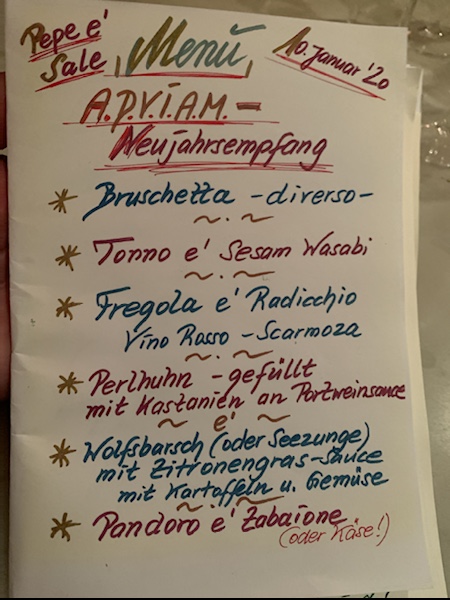 Pepe e' Sale
Menü
10. Januar '20
A.P.V.I.A.M. -
Neujahrsempfang
* Bruschetta - diverso -
~ . ~
* Tonno e' Sesam Wasabi
~ . ~
* Fregola e' Radicchio
Vino Rosso - Scarmoza
~ . ~
* Perlhuhn - gefüllt
mit Kastanien an Portweinsauce
~ e' ~
* Wolfsbarsch (oder Seezunge)
mit Zitronengras-Sauce
mit Kartoffeln u. Gemüse
~ . ~
* Pandoro e' Zabaione
(oder Käse!)